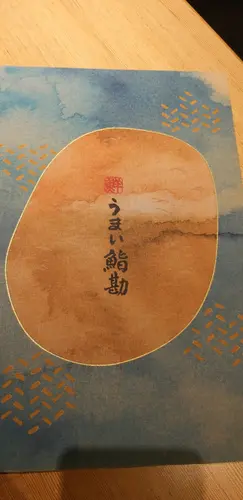 うまい鮨勘